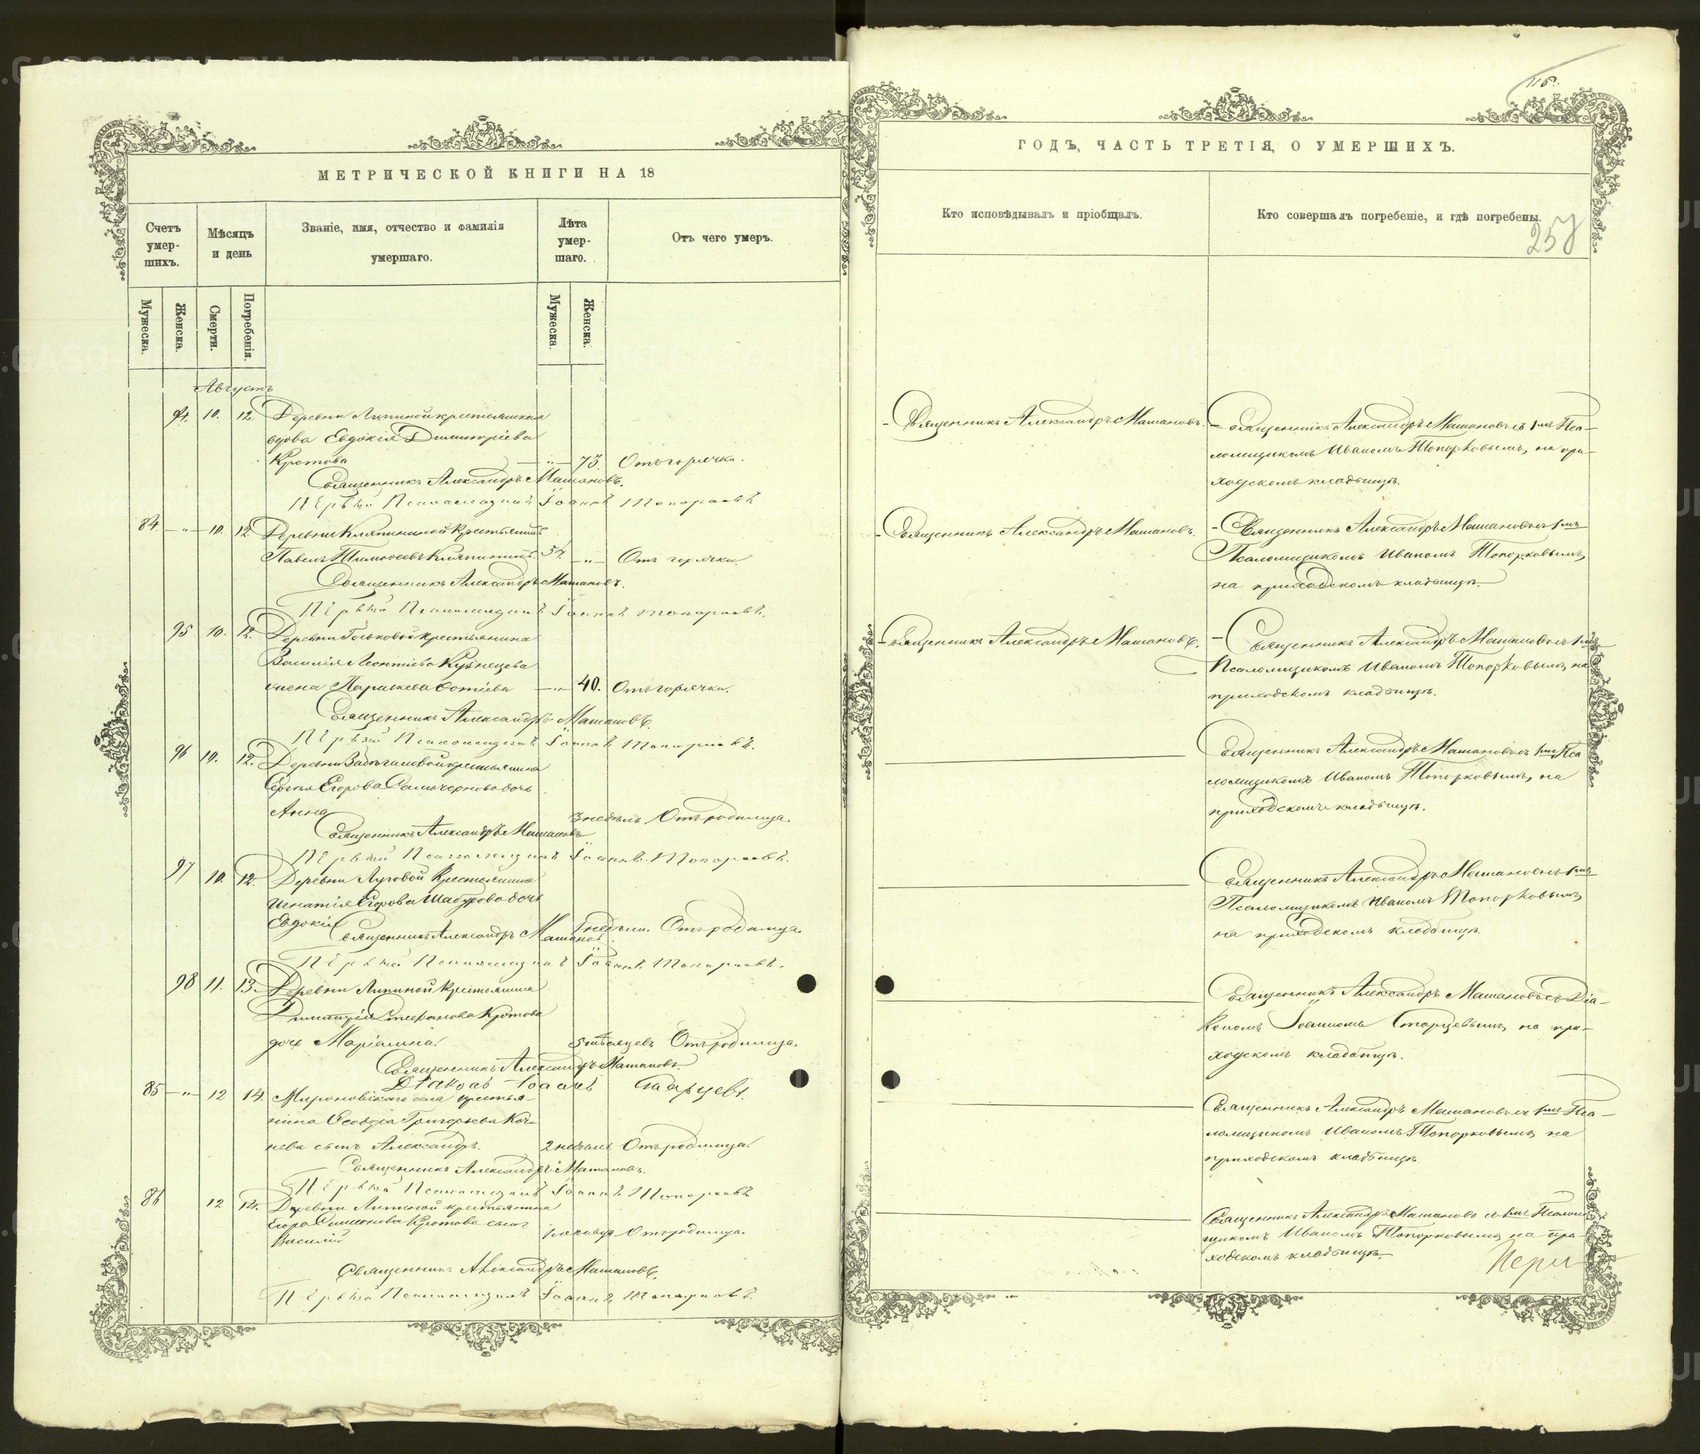 МЕТРИЧЕСКОЙ КНИГИ НА 18
Счетъ умер-шихъ.
Мѣсяцъ и день
Званіе, имя, отчество и фамилія умершаго.
Лѣта умер-шаго.
Отъ чего умеръ.
Мужеска.
Женска.
Смерти.
Погребенія.
Мужеска.
Женска.
Августъ
94. 10. 12. Деревни Липиной крестьянская
вдова Евдокія Димитріева
Кротова — „ — 73. Отъ горячки.
Священникъ Александръ Машановъ.
Первый Псаломщикъ Іоаннъ Топорковъ
84. — „ — 10. 12. Деревни Кляпиной Крестьянинъ
Павелъ Тимофеевъ Кляпининъ — „ — Отъ горячки.
Священникъ Александръ Машановъ.
Первый Псаломщикъ Іоаннъ Топорковъ.
95 10. 12. Деревни крестьянина
Василія Леонтіева Кузнецова
жена Параскева Фотіева — „ — 40. Отъ горячки.
Священникъ Александръ Машановъ.
Первый Псаломщикъ Іоаннъ Топорковъ.
96 10. 12. Деревни крестьянина
Сергія Егорова дочь
Анна 3 недѣль Отъ родимца.
Священникъ Александръ Машановъ
Первый Псаломщикъ Іоаннъ Топорковъ.
97 10. 12. Деревни Луговой Крестьянина
Игнатія Егорова Шабурова дочь
Евдокія недѣли. Отъ родимца.
Священникъ Александръ Машановъ
Первый Псаломщикъ Іоаннъ Топорковъ.
98 11. 13. Деревни Липиной Крестьянина
Димитрія Стефанова Кротова
дочь Маріамна. 5 мѣсяцевъ Отъ родимца.
Священникъ Александръ Машановъ.
Діаконъ Іоаннъ Старцевъ.
85 — „ — 12 14. Мироновскаго села крестья-
нина Ѳеодора Григорьева Коч-
нева сынъ Александръ. 2 недѣль Отъ родимца.
Священникъ Александръ Машановъ.
Первый Псаломщикъ Іоаннъ Топорковъ
86 12 14. Деревни Липиной крестьянина
Егора Симеонова Кротова сынъ
Василій Отъ родимца.
Священникъ Александръ Машановъ.
Первый Псаломщикъ Іоаннъ Топорковъ.
ГОДЪ, ЧАСТЬ ТРЕТІЯ, О УМЕРШИХЪ.
Кто исповѣдывалъ и пріобщалъ.
Кто совершалъ погребеніе, и гдѣ погребены.
257
Священникъ Александръ Машановъ.
Священникъ Александръ Машановъ съ 1мъ Пса-
ломщикомъ Иваномъ Топорковымъ, на при-
ходскомъ кладбищѣ.
Священникъ Александръ Машановъ.
Священникъ Александръ Машановъ съ 1мъ
Псаломщикомъ Иваномъ Топорковымъ,
на приходскомъ кладбищѣ.
Священникъ Александръ Машановъ.
Священникъ Александръ Машановъ съ 1мъ
Псаломщикомъ Иваномъ Топорковымъ, на
приходскомъ кладбищѣ.
Священникъ Александръ Машановъ съ 1мъ Пса-
ломщикомъ Иваномъ Топорковымъ, на
приходскомъ кладбищѣ.
Священникъ Александръ Машановъ съ 1мъ
Псаломщикомъ Иваномъ Топорковымъ,
на приходскомъ кладбищѣ.
Священникъ Александръ Машановъ съ Діа-
кономъ Іоанномъ Старцевымъ, на при-
ходскомъ кладбищѣ.
Священникъ Александръ Машановъ съ 1мъ Пса-
ломщикомъ Иваномъ Топорковымъ, на
приходскомъ кладбищѣ.
Священникъ Александръ Машановъ съ 1мъ Псалом-
щикомъ Иваномъ Топорковымъ, на при-
ходскомъ кладбищѣ.